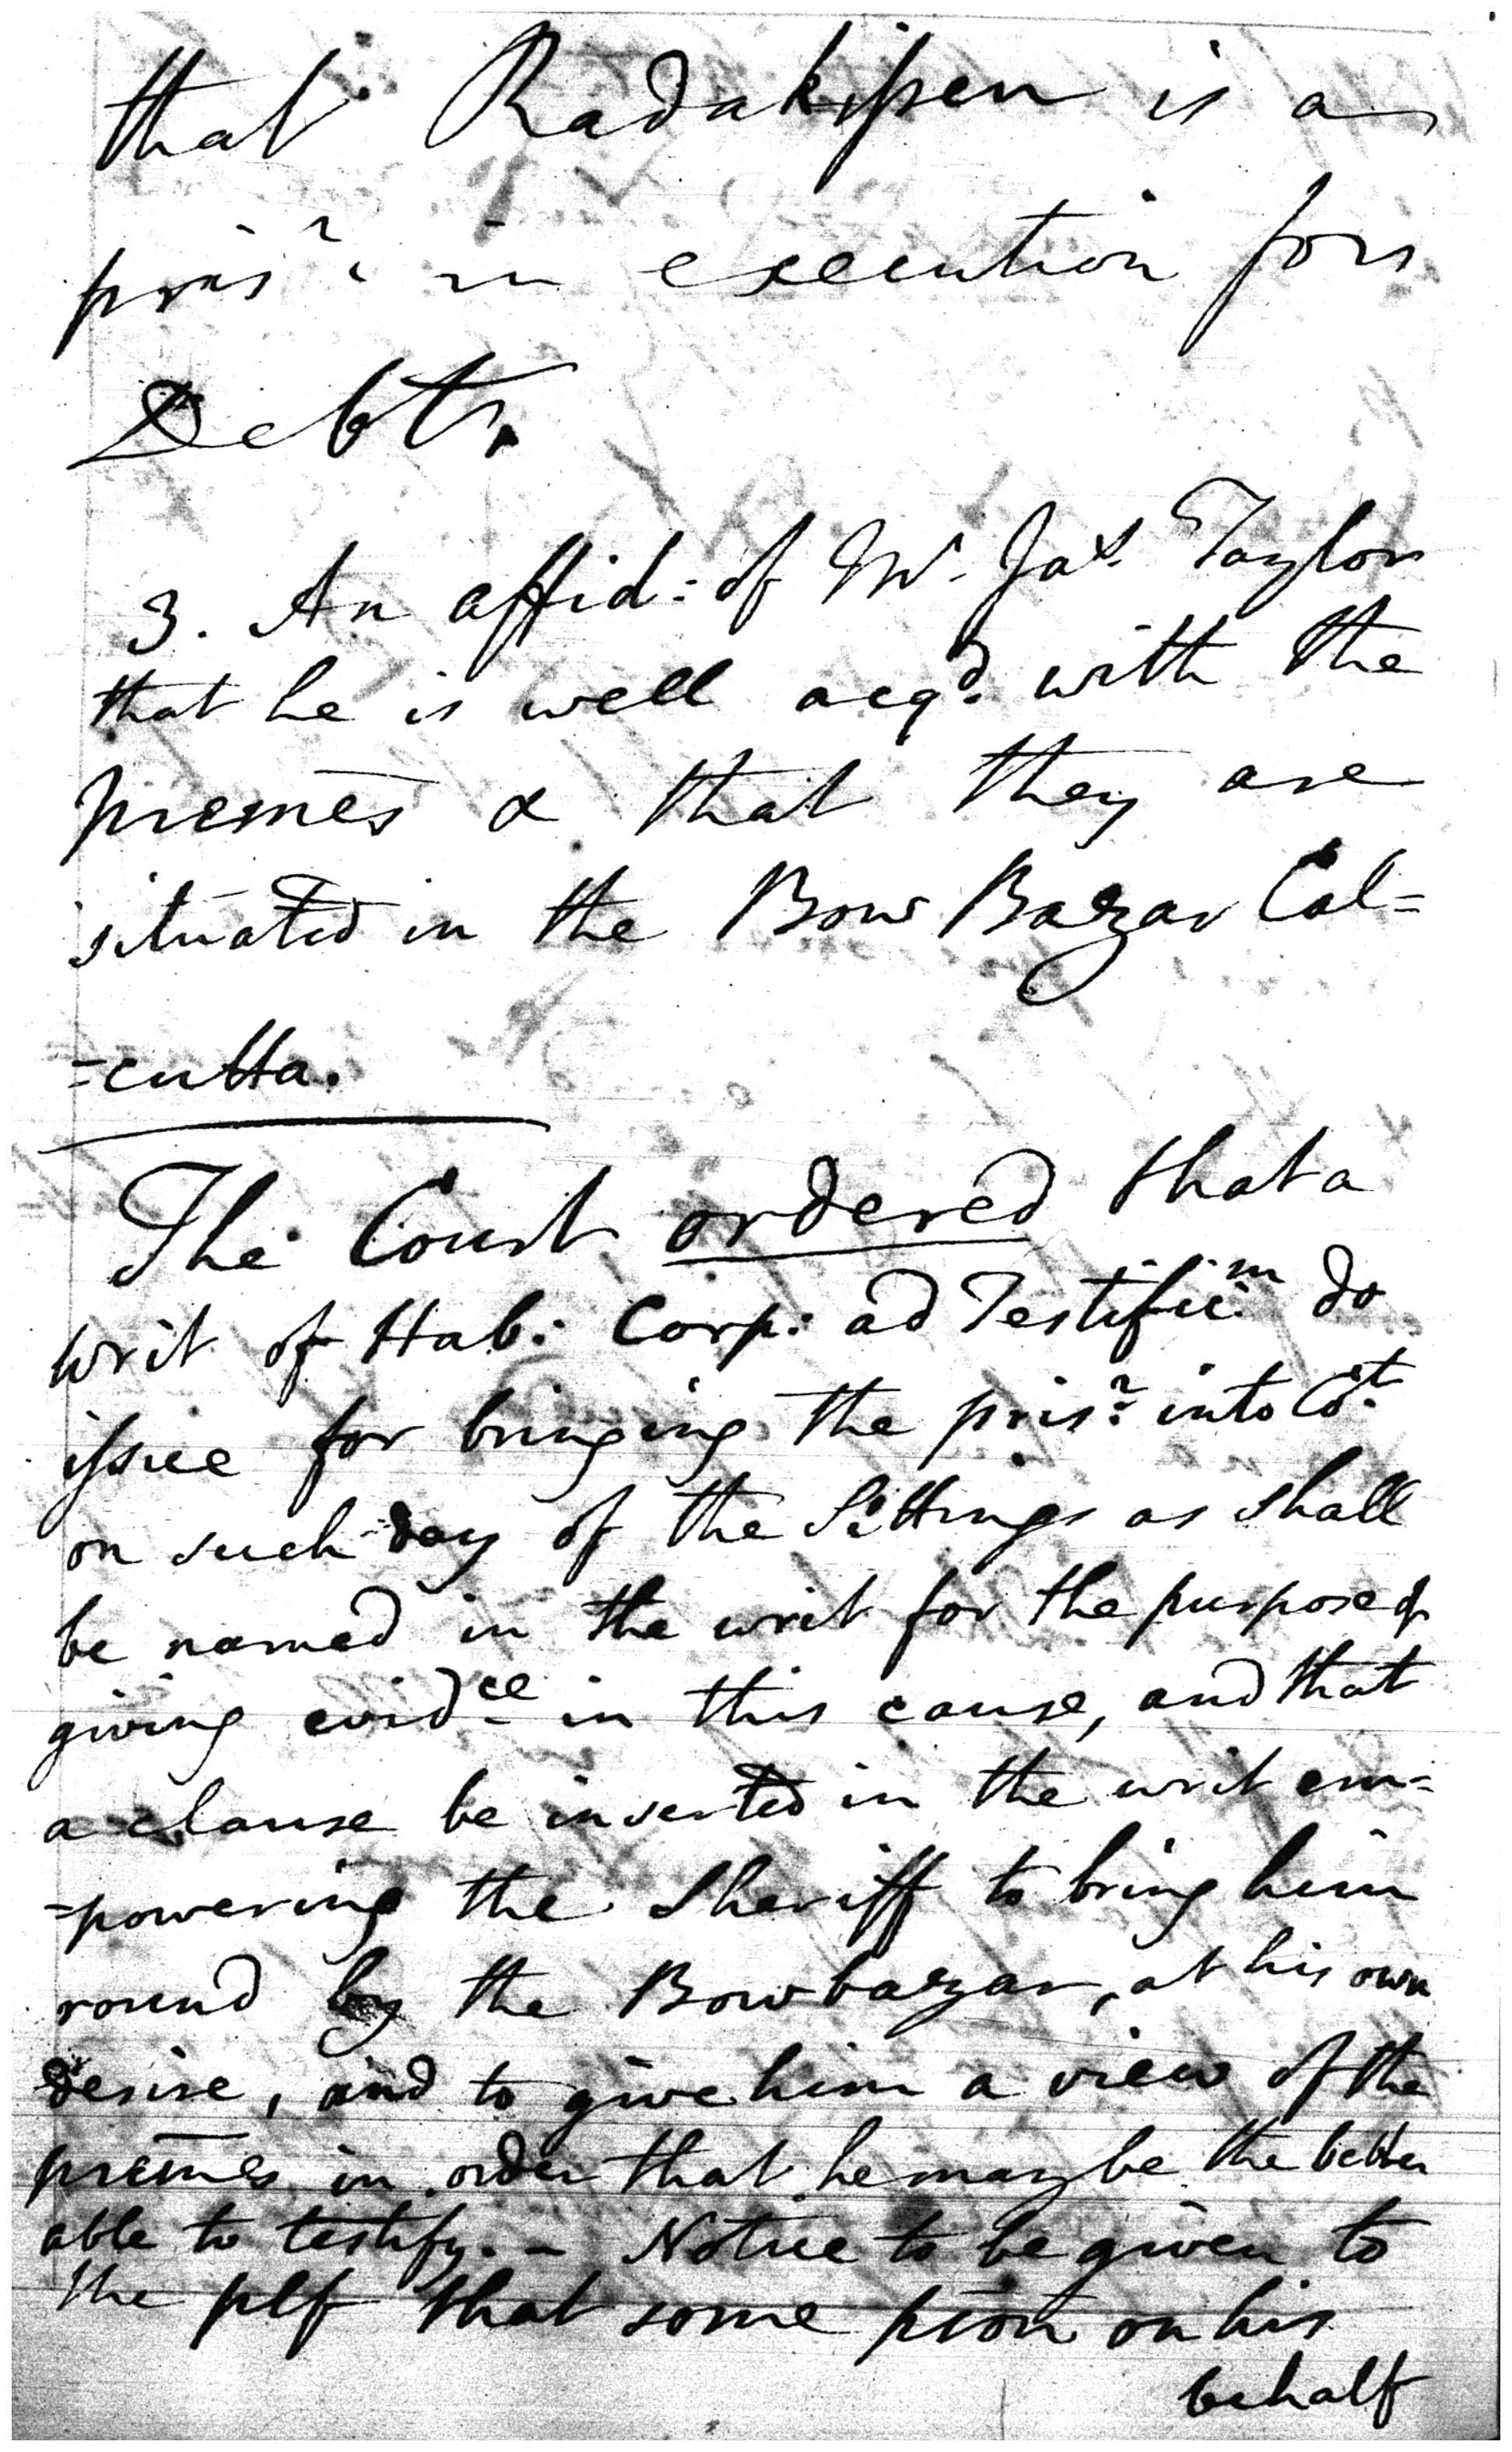 that Radakissen is a
pris.r in execution for
Debt.
3. An affid: of Mr. Jas. Taylor
that he is well acqd. with the
premes & that they are
situated in the Bow Bazar Cal=
=cutta.
The Court ordered that a
writ of Hab: Corp: ad Testific:m do
issue for bringing the pris:r into Co:t
on such day of the Sittings as shall
be named in the writ for the purpose of
giving evidce in this cause, and that
a clause be inserted in the writ em=
=powering the Sheriff to bring him
round by the Bowbazar, at his own
desire, and to give him a view of the
premes in order that he may be the better
able to testify. - Notice to be given to
the plf that some pson on his
behalf